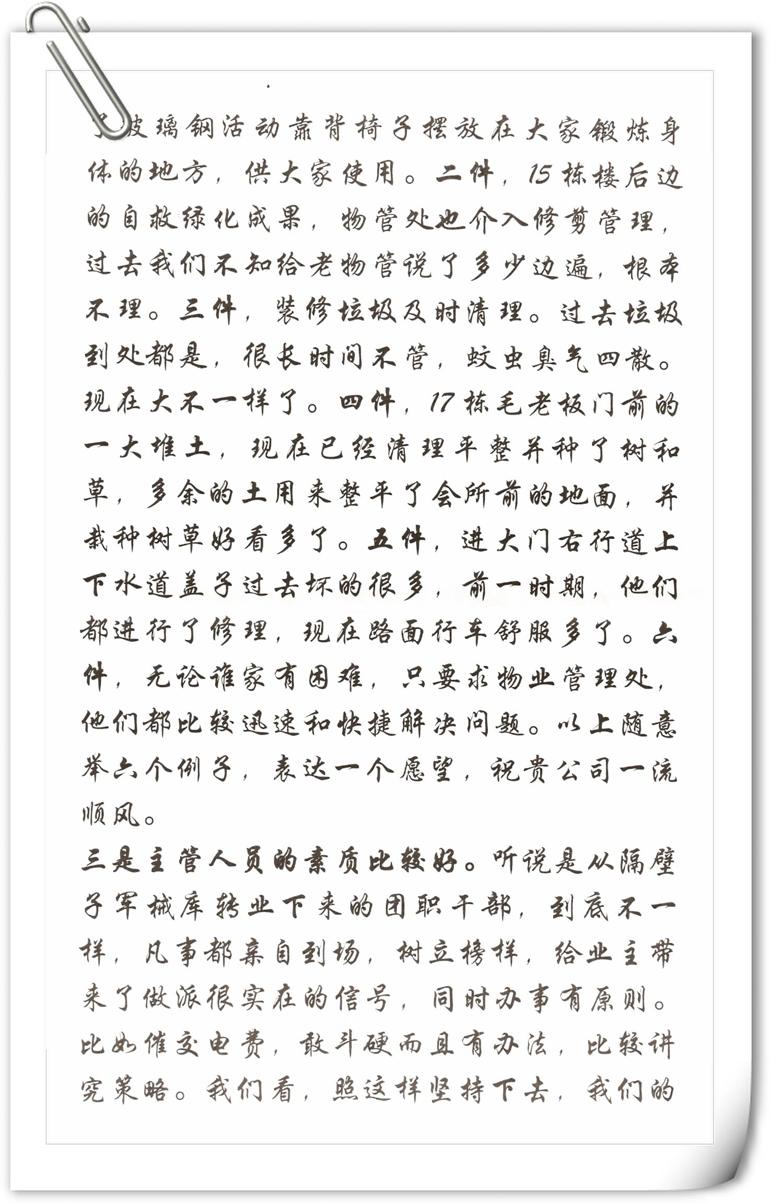 了玻璃钢活动靠背椅子摆放在大家锻炼身
体的地方，供大家使用。二件，15栋楼后边
的自救绿化成果，物管处也介入修剪管理，
过去我们不知给老物管说了多少边遍，根本
不理。三件，装修垃圾及时清理。过去垃圾
到处都是，很长时间不管，蚊虫臭气四散。
现在大不一样了。四件，17栋毛老板门前的
一大堆土，现在已经清理平整并种了树和
草，多余的土用来整平了会所前的地面，并
栽种树草好看多了。五件，进大门右行道上
下水道盖子过去坏的很多，前一时期，他们
都进行了修理，现在路面行车舒服多了。六
件，无论谁家有困难，只要求物业管理处，
他们都比较迅速和快捷解决问题。以上随意
举六个例子，表达一个愿望，祝贵公司一流
顺风。
三是主管人员的素质比较好。听说是从隔壁
子军械库转业下来的团职干部，到底不一
样，凡事都亲自到场，树立榜样，给业主带
来了做派很实在的信号，同时办事有原则。
比如催交电费，敢斗硬而且有办法，比较讲
究策略。我们看，照这样坚持下去，我们的